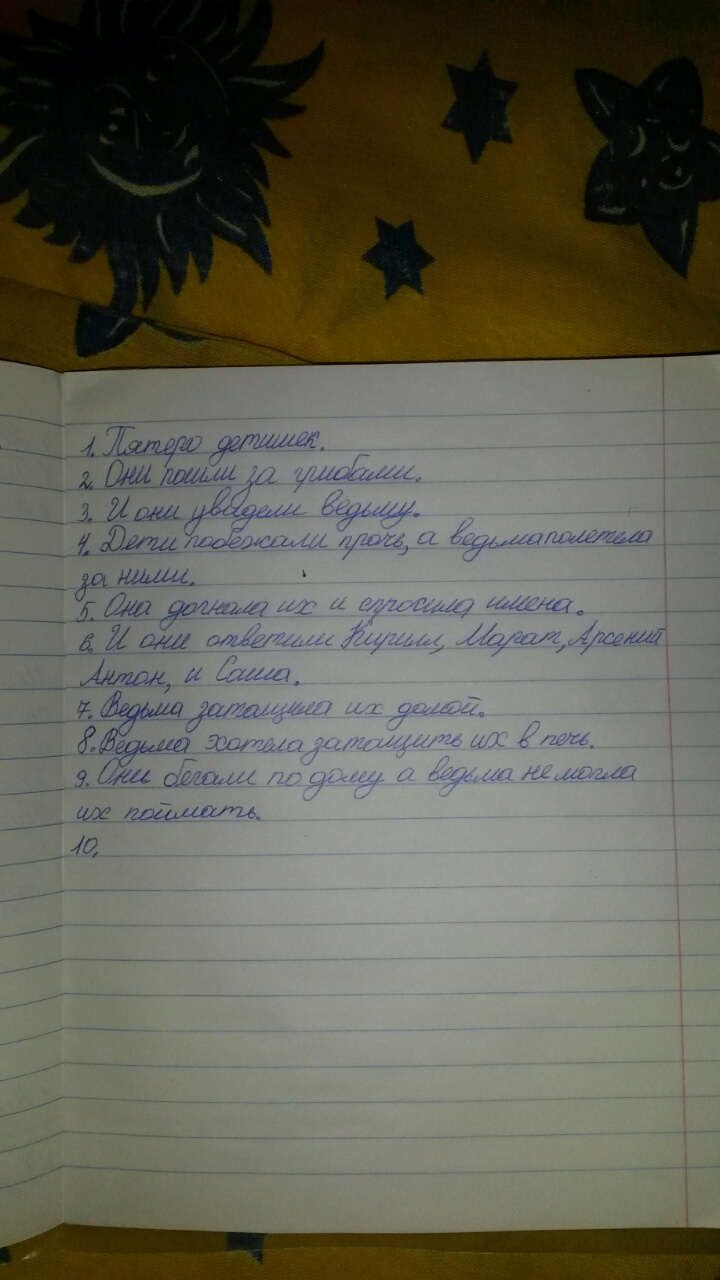 1. Пятеро детишек.
2. Они пошли за грибами.
3. И они увидели ведьму.
4. Дети побежали прочь, а ведьма полетела
за ними.
5. Она догнала их и спросила имена.
6. И они ответили Кирилл, Марат, Арсений
Антон, и Саша.
7. Ведьма затащила их домой.
8. Ведьма хотела затащить их в печь.
9. Они бегали по дому а ведьма не могла
их поймать.
10.